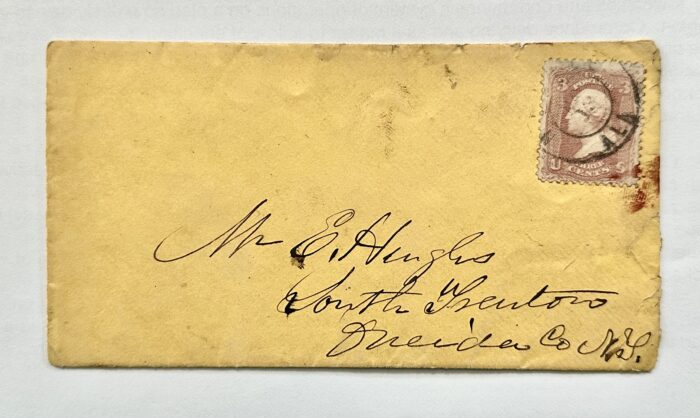 3 3
U CENTS S
ALA
Mr E. Hughs
South Trenton
Oneida Co N.Y.